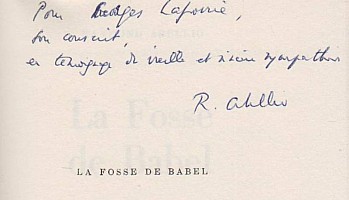 Pour Georges
son conscrit,
en témoignage de vieille et sympathie
R. Abellio
La Fosse
de Babel
LA FOSSE DE BABEL